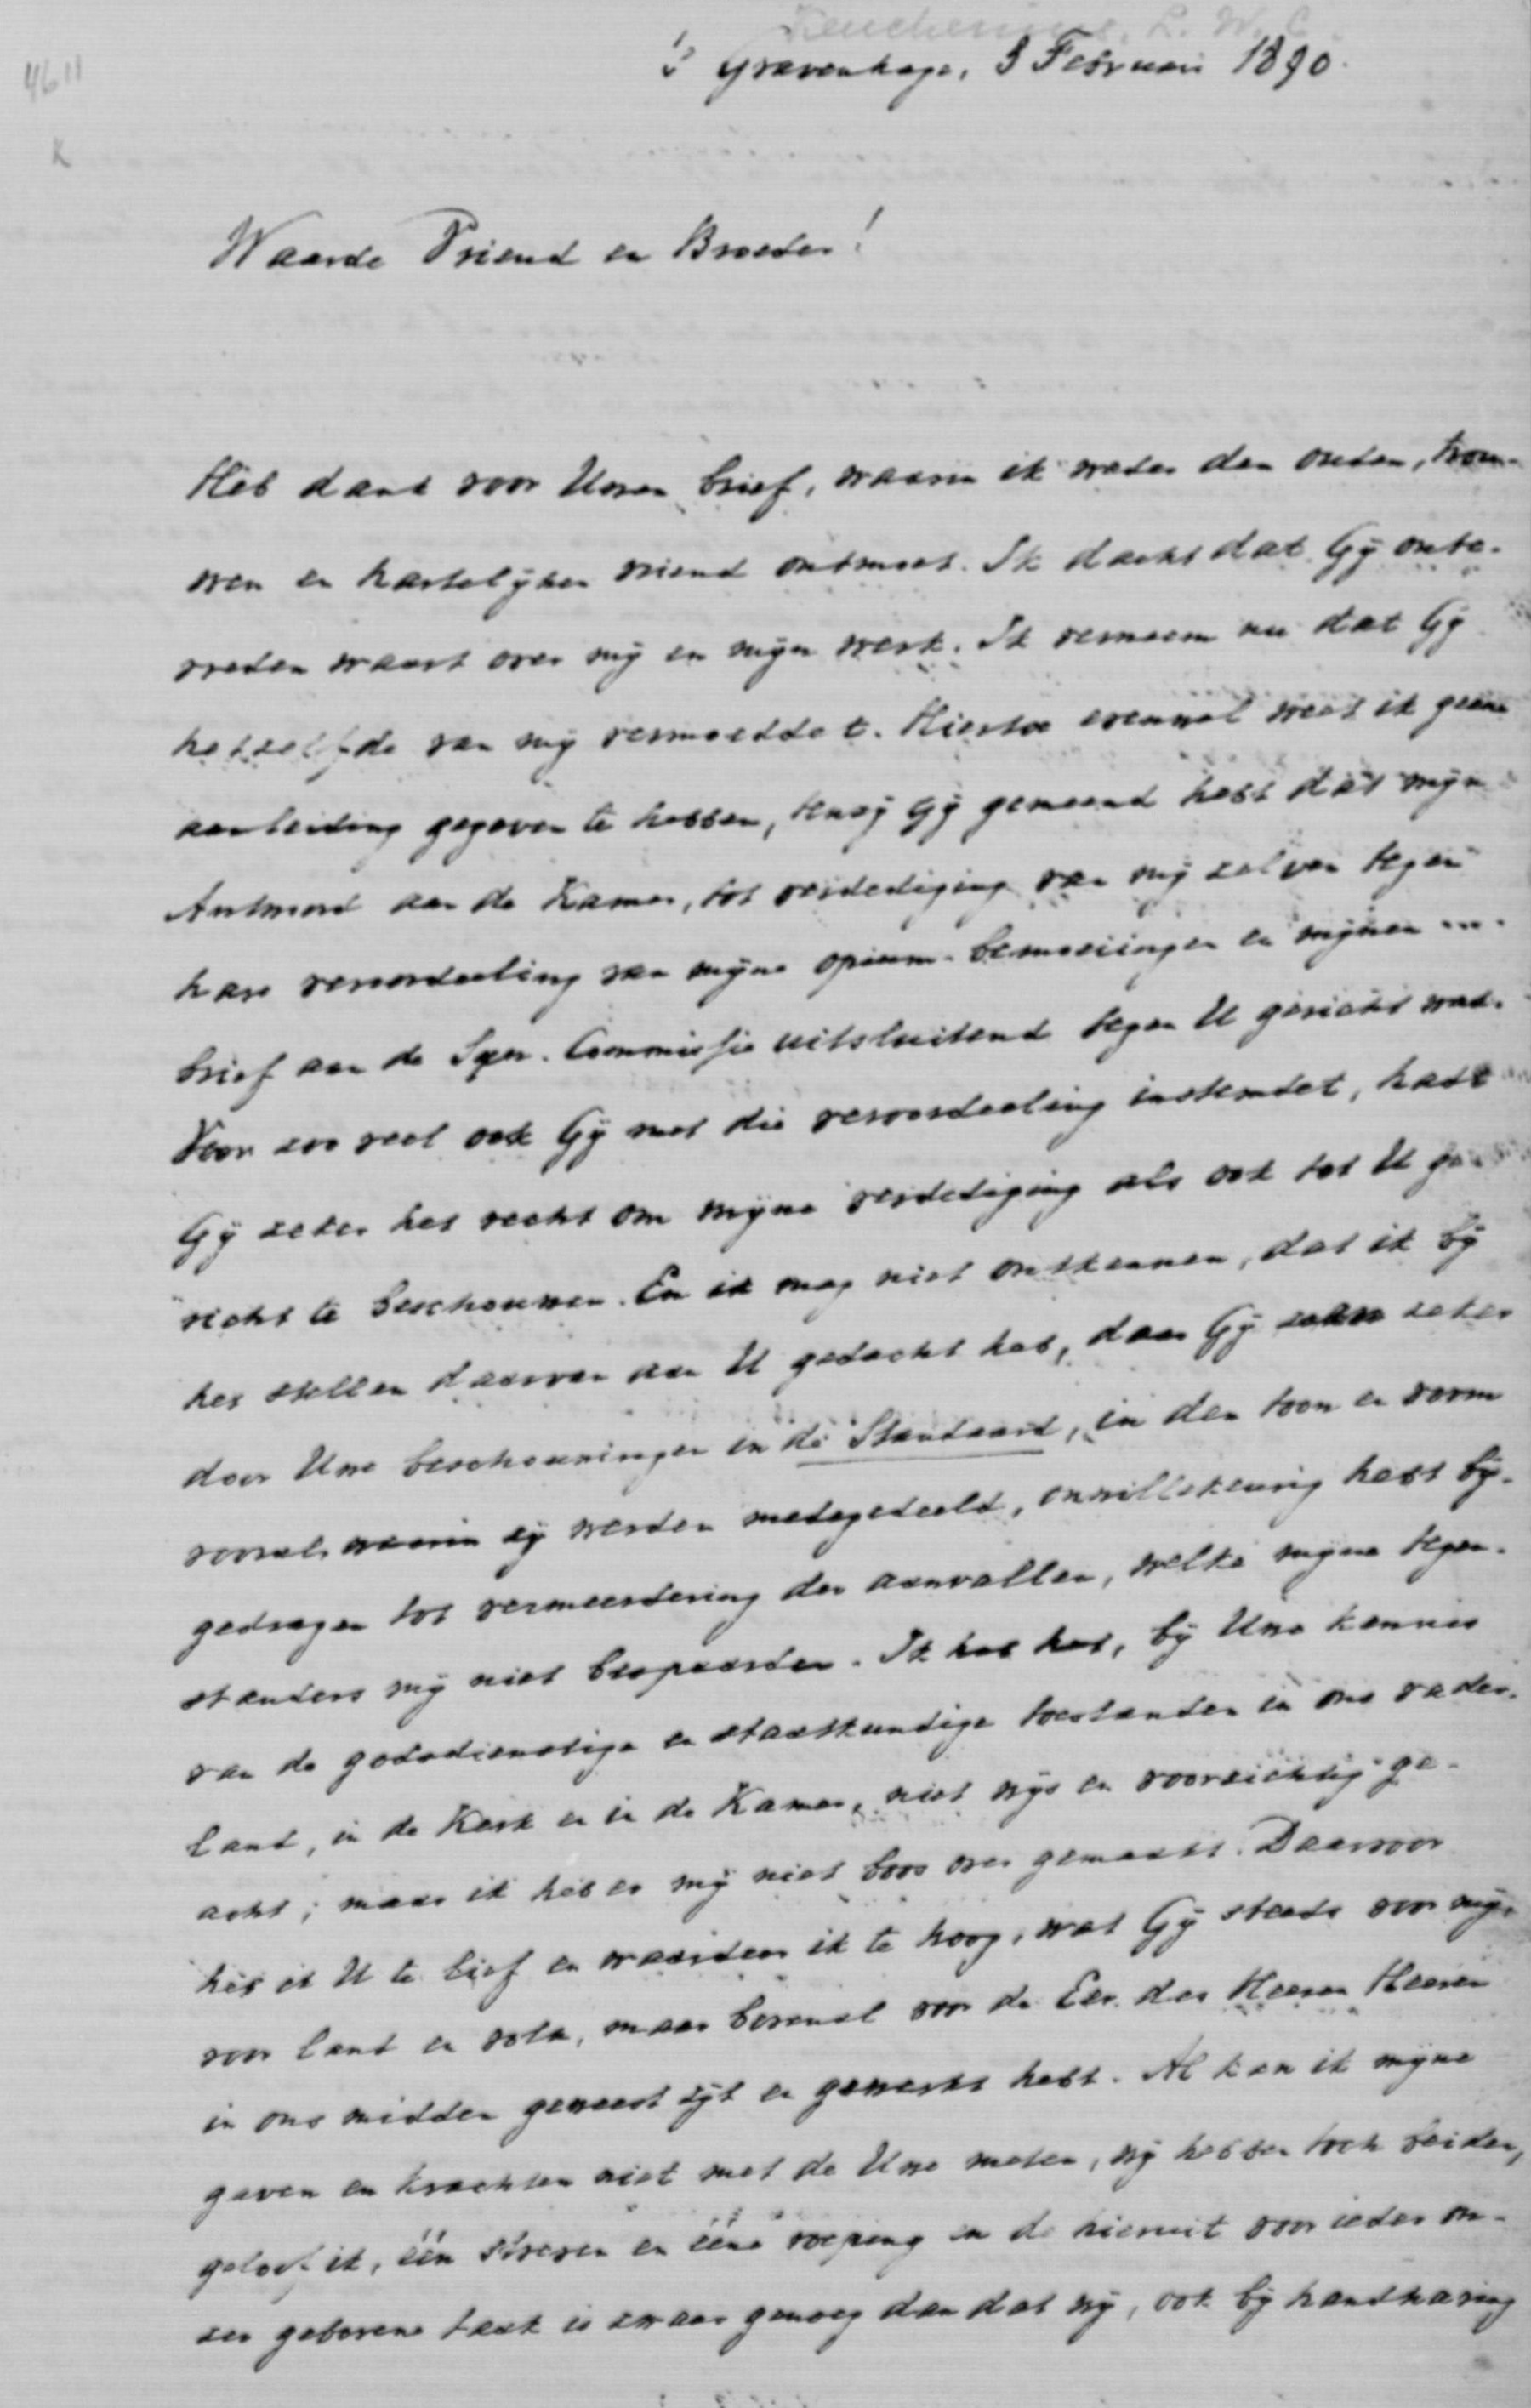 Keuchenius, L. W. C.
4611
K
's Gravenhage, 3 Februari 1890.
Waarde Vriend en Broeder!
Heb dank voor Uwen brief, waarin ik weder den ouden, trou-
wen en hartelijken vriend ontmoet. Ik dacht dat Gij onte-
vreden waart over mij en mijn werk. Ik verneem nu dat Gij
hetzelfde van mij vermoeddet. Hiertoe evenwel weet ik geene
aanleiding gegeven te hebben, tenzij Gij gemeend hebt dat mijn
Antwoord aan de Kamer, tot verdediging van mij zelven tegen
hare veroordeeling van mijne opium-bemoeiingen en mijnen
brief aan de Syn. Commissie uitsluitend tegen U gericht was.
Voor zoo veel ook Gij met die veroordeeling instemdet, hadt
Gij zeker het recht om mijne verdediging als ook tot U ge-
richt te beschouwen. En ik mag niet ontkennen, dat ik bij
het stellen daarvan aan U gedacht heb, daar Gij zeker
door Uwe beschouwingen in de Standaard, in den toon en vorm
vooral waarin zij werden medegedeeld, onwillekeurig hebt bij-
gedragen tot vermeerdering der aanvallen, welke mijne tegen-
standers mij niet bespaarden. Ik heb het, bij Uwe kennis
van de godsdienstige en staatkundige toestanden in ons vader-
land, in de Kerk en in de Kamer, niet wijs en voorzichtig ge-
acht; maar ik heb er mij niet boos over gemaakt. Daarvoor
heb ik U te lief en waardeer ik te hoog, wat Gij steeds voor mij,
voor land en volk, maar bovenal voor de Eer des Heeren Heeren
in ons midden geweest zijt en gewerkt hebt. Al kan ik mijne
gaven en krachten niet met de Uwe meten, wij hebben toch beiden,
geloof ik, één streven en ééne roeping en de hieruit voor ieder on-
zer geborene taak is zwaar genoeg dan dat wij, ook bij handhaving